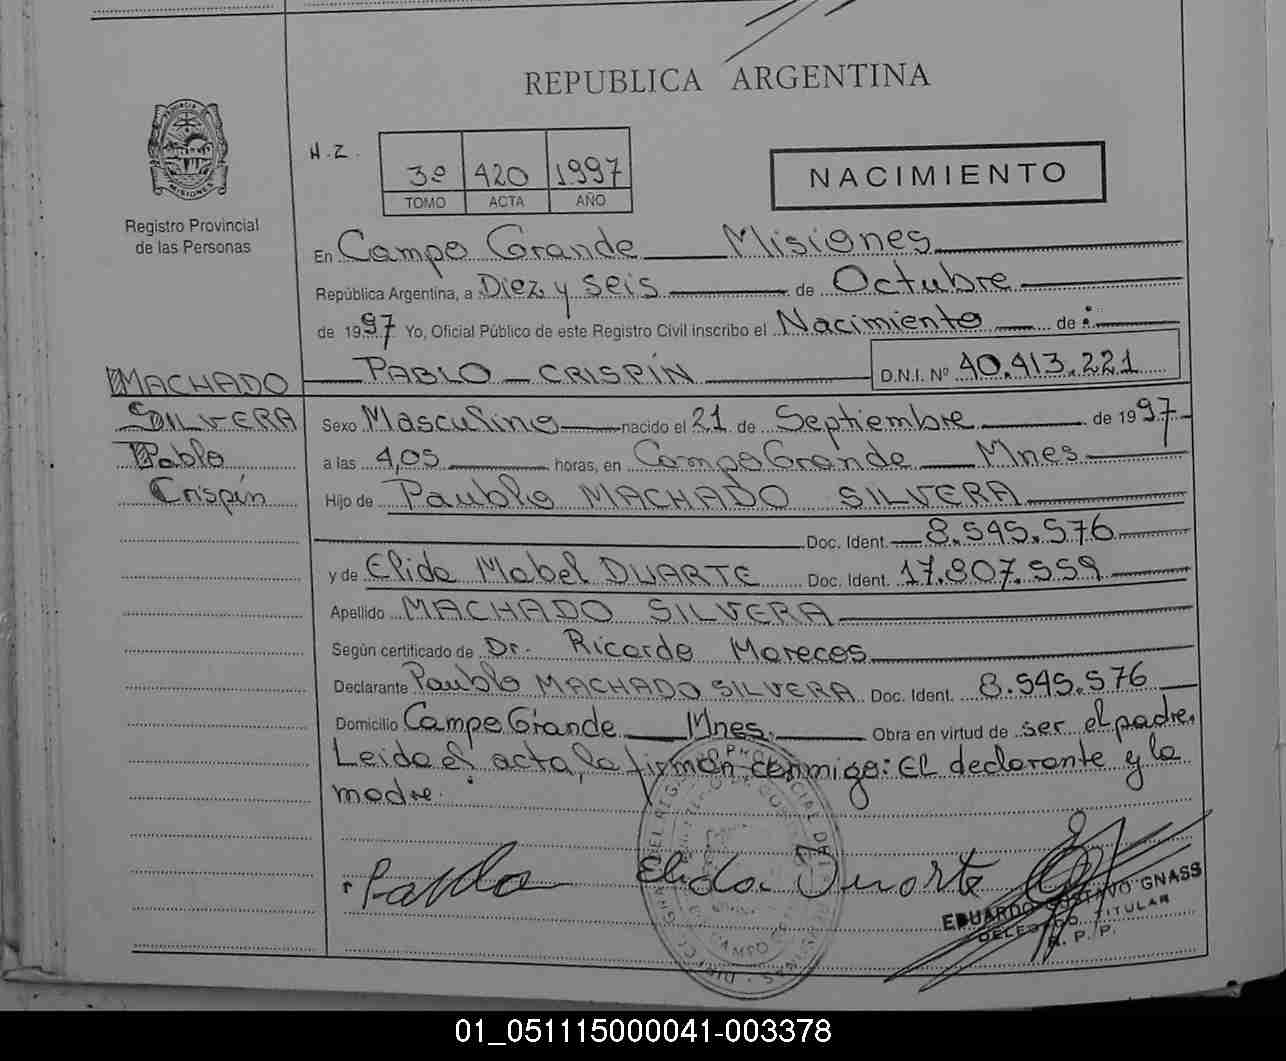 REPUBLICA ARGENTINA
H.Z.
3º 420 1997
TOMO ACTA AÑO
NACIMIENTO
Registro Provincial
de las Personas
MISIONES
En Campo Grande Misiones
República Argentina, a Diez y seis de Octubre
de 1997 Yo, Oficial Público de este Registro Civil inscribo el Nacimiento de:
PABLO CRISPÍN D.N.I. Nº 40.413.221
MACHADO
SILVERA
Pablo
Crispín
Sexo Masculino nacido el 21 de Septiembre de 1997
a las 4,05 horas, en Campo Grande Mnes
Hijo de Paublo MACHADO SILVERA
Doc. Ident. 8.545.576
y de Elida Mabel DUARTE Doc. Ident. 17.807.559
Apellido MACHADO SILVERA
Según certificado de Dr. Ricardo Mareces
Declarante Paublo MACHADO SILVERA Doc. Ident. 8.545.576
Domicilio Campo Grande Mnes. Obra en virtud de ser el padre.
Leida el acta, la firman conmigo: El declarante y la
madre.
Elida Duarte
EDUARDO GUSTAVO GNASS
DELEGADO TITULAR
R.P.P.
01_051115000041-003378